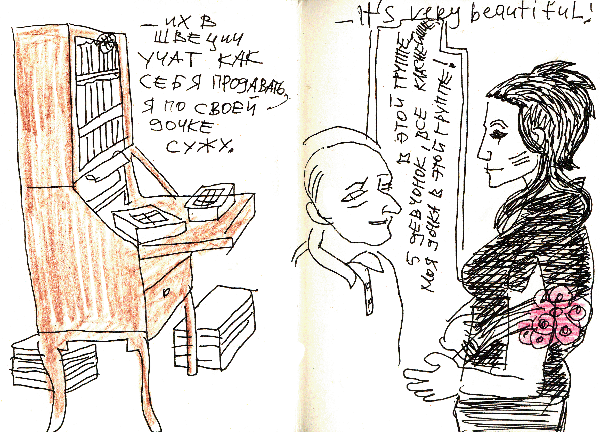 — ИХ В
ШВЕЦИИ
УЧАТ КАК
СЕБЯ ПРОДАВАТЬ,
Я ПО СВОЕЙ
ДОЧКЕ
СУЖУ.
— It's very beautiful!
5 ДЕВЧОНОК! ВСЕ КЛАССНЫЕ!
В ЭТОЙ ГРУППЕ
МОЯ ДОЧКА В ЭТОЙ ГРУППЕ!